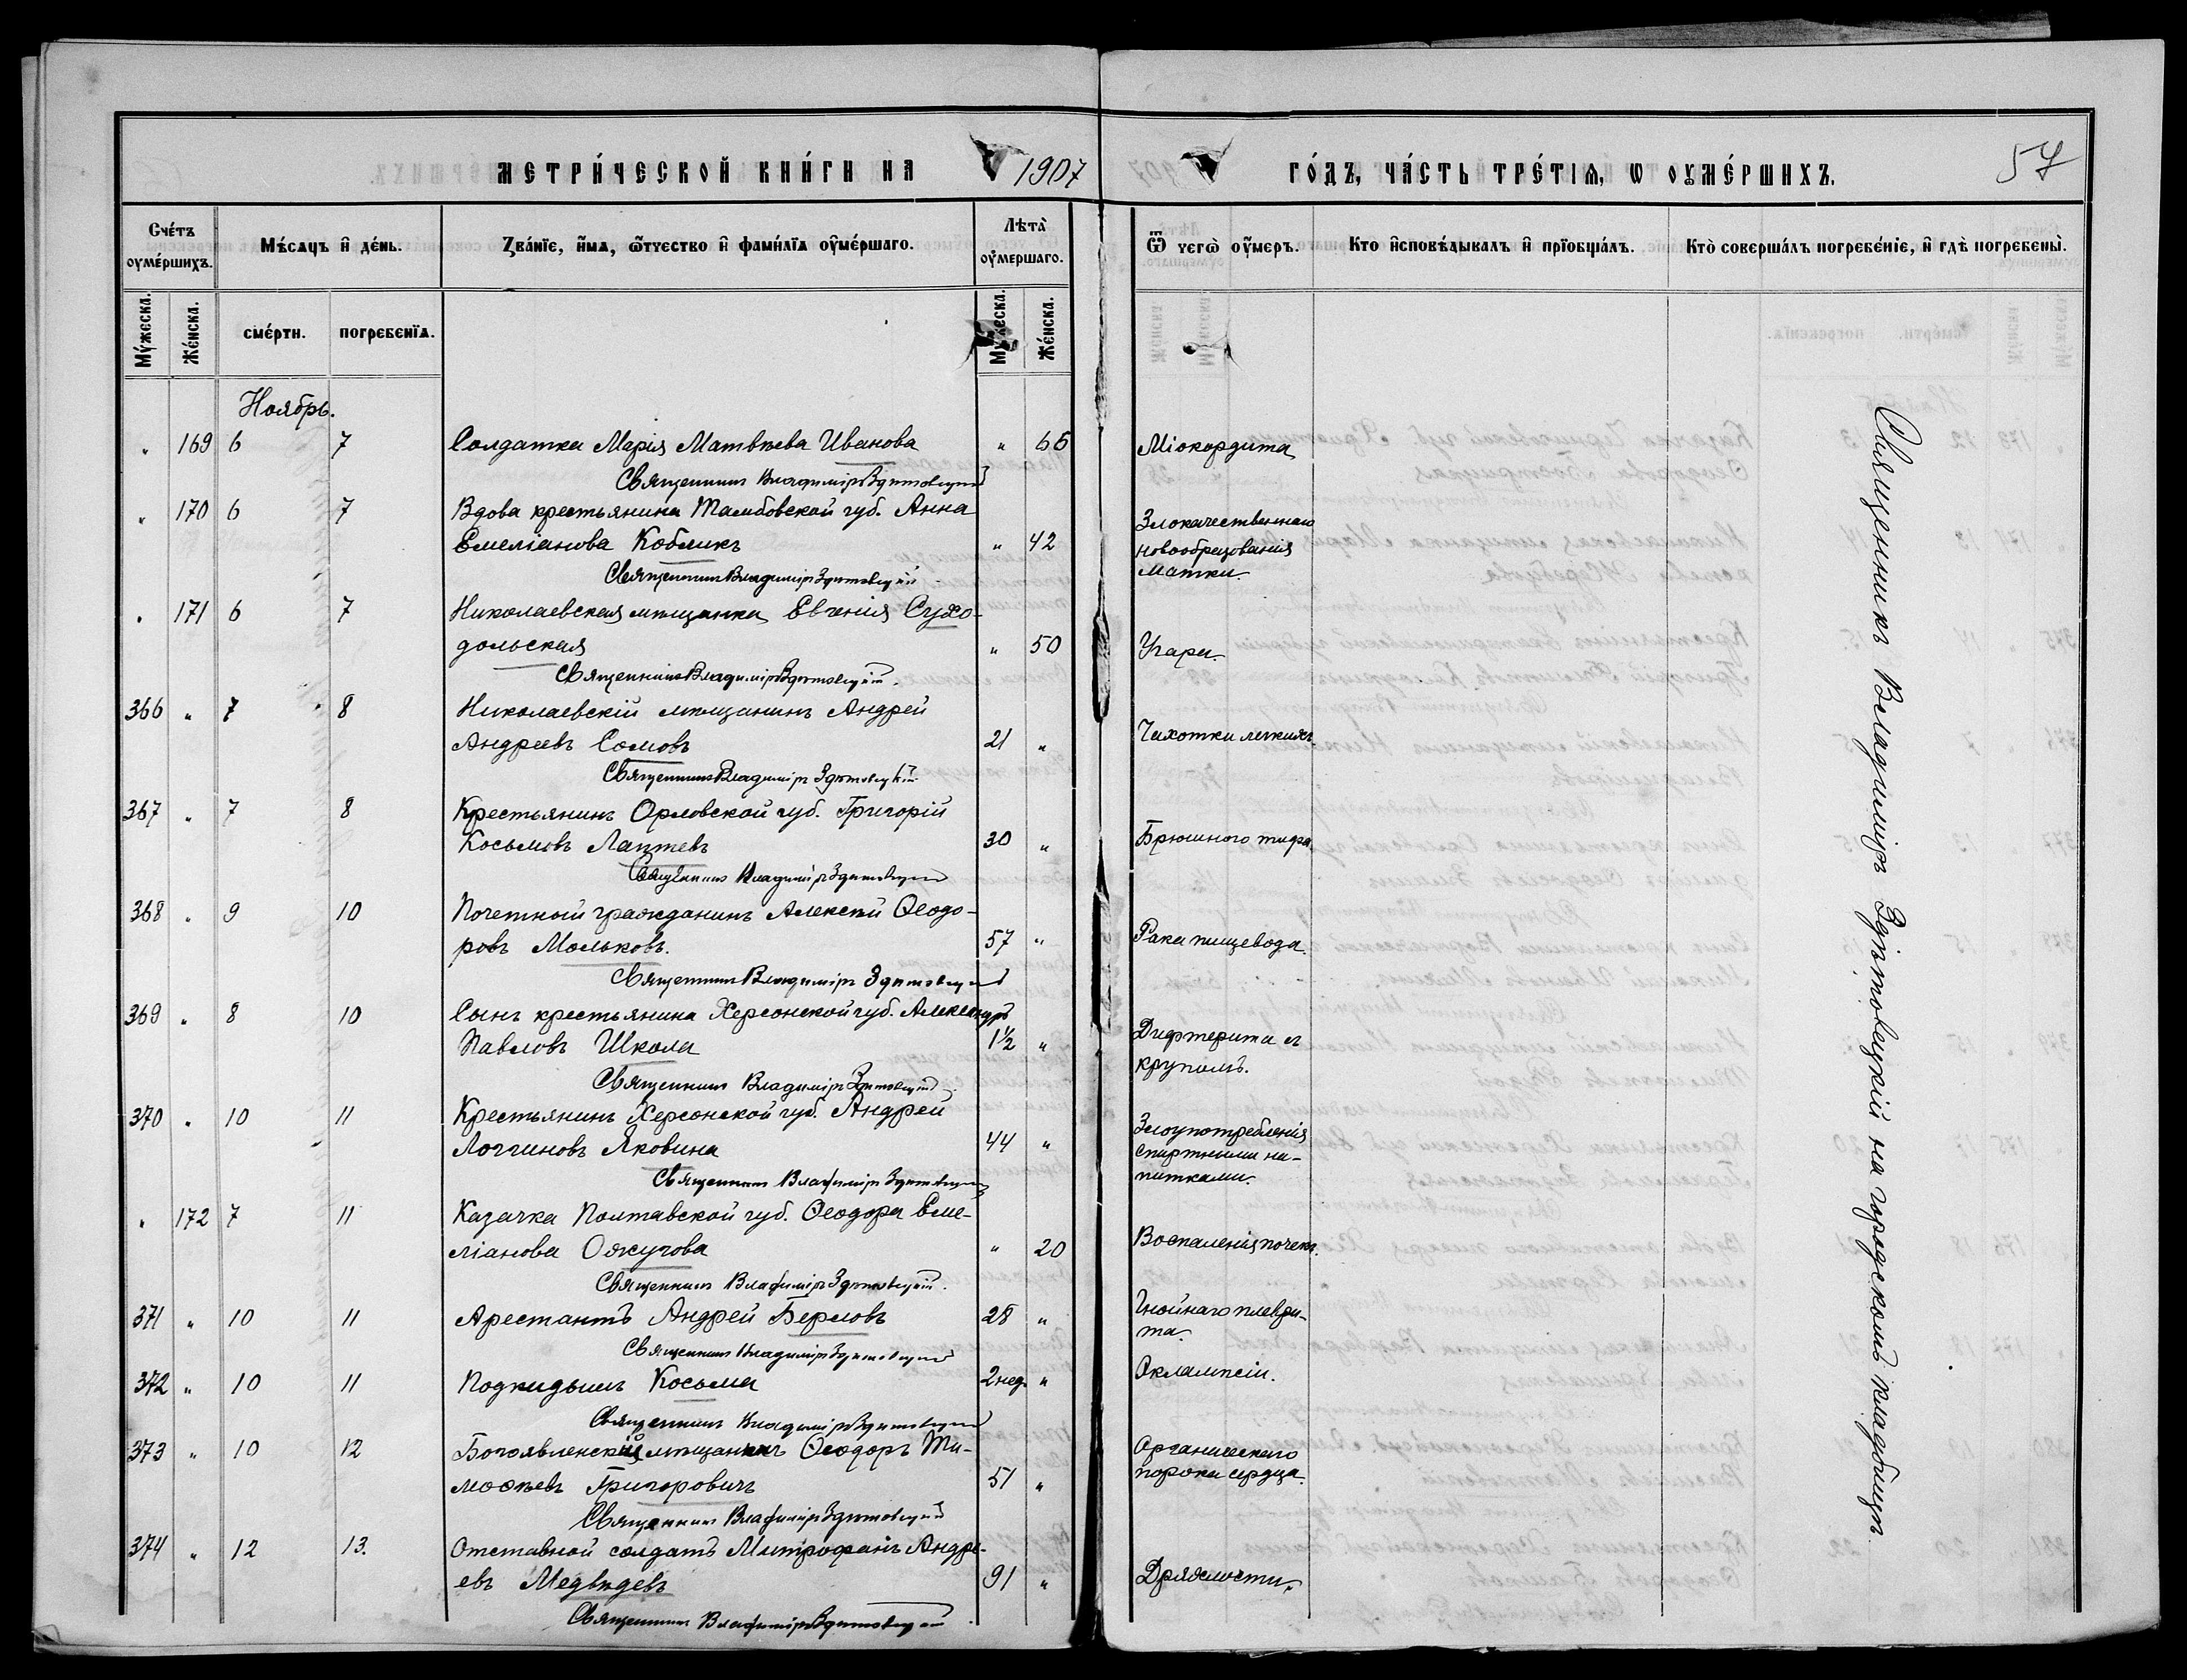 МЕТРИ́ЧЕСКОЙ КНИ́ГИ НА 1907 ГО́ДЪ, ЧА́СТЬ ТРЕ́ТІѦ, Ѡ ОУМЕ́РШИХЪ. 57
Счетъ оумершихъ.
Мѣсяцъ и день.
Званіе, имя, отчество и фамилія оумершаго.
Лѣта оумершаго.
Ѿ чего оумеръ.
Кто исповѣдывалъ и пріобщалъ.
Кто совершалъ погребеніе, и гдѣ погребены.
Мужеска. Женска. смерти. погребенія. Мужеска. Женска.
Ноябрь.
" 169 6 7 Солдатка Марія Матвѣева Иванова " 66 Міокардита
Священникъ Владиміръ Здѣтовецкій
" 170 6 7 Вдова крестьянина Тамбовской губ. Анна
Емеліанова Кобликъ " 42 Злокачественнаго
новообразованія
матки.
Священникъ Владиміръ Здѣтовецкій
" 171 6 7 Николаевская мѣщанка Евгенія Сухо-
дольская " 50 Угара.
Священникъ Владиміръ Здѣтовецкій.
366 " 7 8 Николаевскій мѣщанинъ Андрей
Андреевъ Сомовъ 21 " Чахотки легкихъ.
Священникъ Владиміръ Здѣтовецкій
367 " 7 8 Крестьянинъ Орловской губ. Григорій
Косьмовъ Лаптевъ 30 " Брюшного тифа.
Священникъ Владиміръ Здѣтовецкій
368 " 9 10 Почетный гражданинъ Алексѣй Ѳеодо-
ровъ Мольковъ. 57 " Рака пищевода.
Священникъ Владиміръ Здѣтовецкій
369 " 8 10 Сынъ крестьянина Херсонской губ. Александръ
Павловъ Школа 1½ " Дифтерита съ
крупомъ.
Священникъ Владиміръ Здѣтовецкій.
370 " 10 11 Крестьянинъ Херсонской губ. Андрей
Логгиновъ Яковина 44 " Злоупотребленія
спиртными на-
питками.
Священникъ Владиміръ Здѣтовецкій
" 172 7 11 Казачка Полтавской губ. Ѳеодора Еме-
ліанова " 20 Воспаленія почекъ.
Священникъ Владиміръ Здѣтовецкій.
371 " 10 11 Арестантъ Андрей Берловъ 28 " Гнойнаго плеври-
та.
Священникъ Владиміръ Здѣтовецкій
372 " 10 11 Подкидышъ Косьма 2 нед. " Эклампсіи.
Священникъ Владиміръ Здѣтовецкій
373 " 10 12 Богоявленскій мѣщанинъ Ѳеодоръ Ти-
моѳеевъ Григоровичъ 51 " Органическаго
порока сердца.
Священникъ Владиміръ Здѣтовецкій
374 " 12 13. Отставной солдатъ Митрофанъ Андре-
евъ Медвѣдевъ 91 " Дряхлости.
Священникъ Владиміръ Здѣтовецкій.
Священникъ Владиміръ Здѣтовецкій на городскомъ кладбищѣ